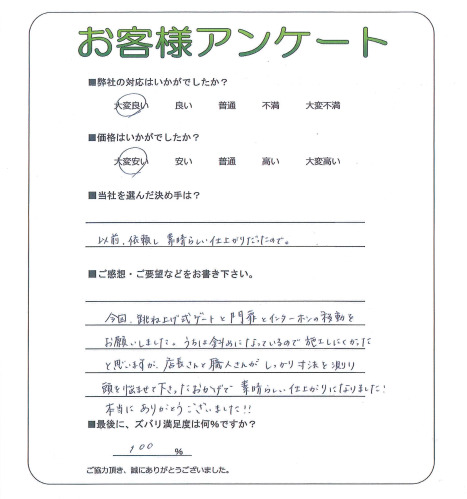 お客様アンケート
■弊社の対応はいかがでしたか？
大変良い 良い 普通 不満 大変不満
■価格はいかがでしたか？
大変安い 安い 普通 高い 大変高い
■当社を選んだ決め手は？
以前、依頼し素晴らしい仕上がりだったので。
■ご感想・ご要望などをお書き下さい。
今回、跳ね上げ式ゲートと門扉とインターホンの移動を
お願いしました。うちは斜めになっているので施工しにくかった
と思いますが、店長さんと職人さんがしっかり寸法を測り
頭を悩ませて下さったおかげで素晴らしい仕上がりになりました!
本当にありがとうございました!!
■最後に、ズバリ満足度は何%ですか？
100 %
ご協力頂き、誠にありがとうございました。